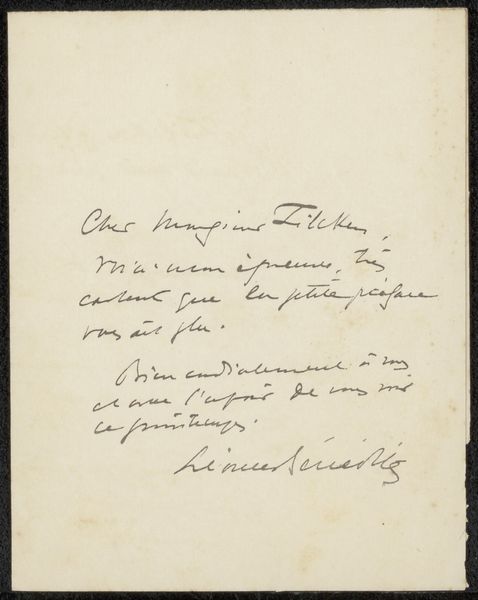 Cher Monsieur Zilcken,
Voici mon épreuve, très
content que la petite préface
vous ait plu.
Bien cordialement à vous
et avec l'espoir de vous voir
ce printemps.
Léonce Bénédite